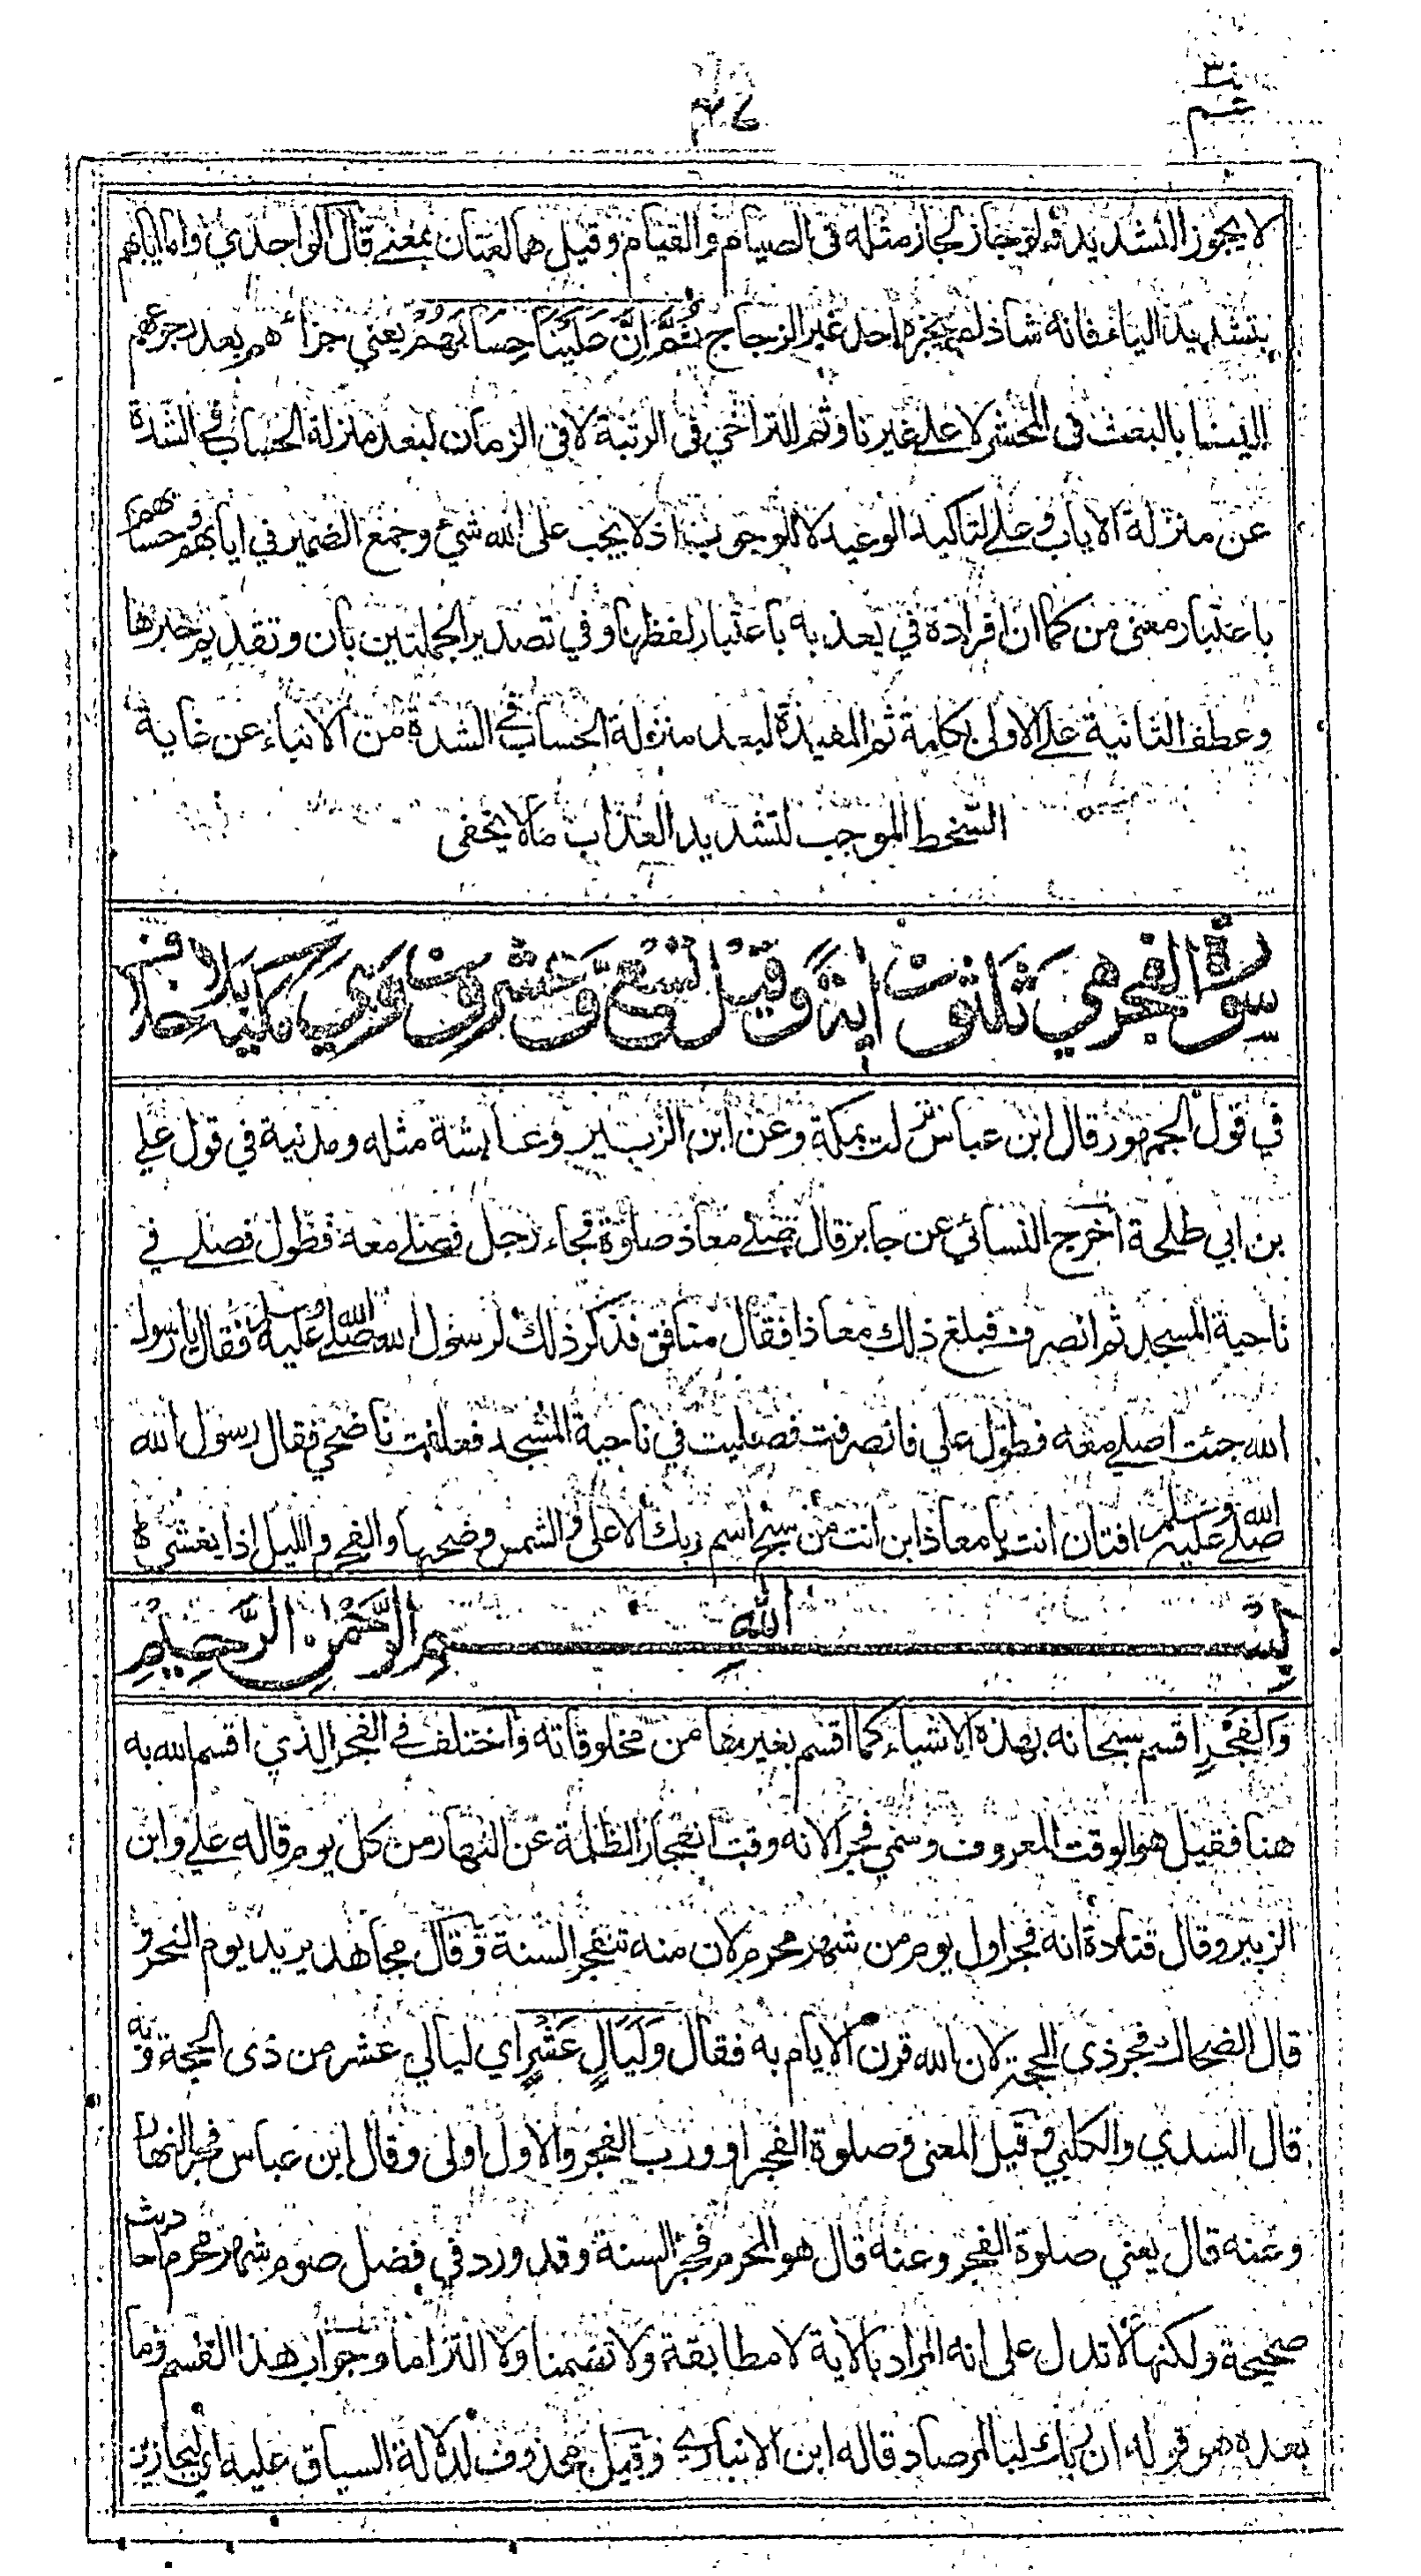 عم ٣٠
٢٤
لا يجوز التشديد فلو جاز لجاز مثله في الصيام والقيام وقيل هما لغتان بمعنى قال الواحدي واما ايابهم
بتشديد الياء فانه شاذ لم يجزه احد غير الزجاج ثُمَّ اِنَّ عَلَيْنَا حِسَابَهُمْ يعني جزاءهم بعد رجوعهم
الينا بالبعث في المحشر لا على غيرنا وثم للتراخي في الرتبة لا في الزمان لبعد منزلة الحساب في الشدة
عن منزلة الاياب وعلى لتاكيد الوعيد لا للوجوب اذ لا يجب على الله شيء وجمع الضمير في ايابهم وحسابهم
باعتبار معنى من كما ان افراده في يعذبه باعتبار لفظها وفي تصدير الجملتين بان وتقديم خبرها
وعطف الثانية على الاولى بكلمة ثم المفيدة لبعد منزلة الحساب في الشدة من الانباء عن غاية
السخط الموجب لتشديد العذاب ما لا يخفى
سورة الفجر هي ثلثون اية وقيل تسع وعشرون اية وهي مكية بلا خلاف
في قول الجمهور قال ابن عباس نزلت بمكة وعن ابن الزبير وعائشة مثله ومدنية في قول علي
بن ابي طلحة اخرج النسائي عن جابر قال صلى معاذ صلوة فجاء رجل فصلى معه فطول فصلى في
ناحية المسجد ثم انصرف فبلغ ذلك معاذا فقال منافق فذكر ذلك لرسول الله صلى الله عليه وسلم فقال يا رسول
الله جئت اصلي معه فطول علي فانصرفت فصليت في ناحية المسجد فعلفت ناضحي فقال رسول الله
صلى الله عليه وسلم افتان انت يا معاذ اين انت من سبح اسم ربك الاعلى والشمس وضحها والفجر والليل اذا يغشى
بسم الله الرحمن الرحيم
وَالْفَجْرِ اقسم سبحانه بهذه الاشياء كما اقسم بغيرها من مخلوقاته واختلف في الفجر الذي اقسم الله به
هنا فقيل هو الوقت المعروف وسمي فجرا لانه وقت انفجار الظلمة عن النهار من كل يوم قاله علي وابن
الزبير وقال قتادة انه فجر اول يوم من شهر محرم لان منه تنفجر السنة وقال مجاهد يريد يوم النحر و
قال الضحاك فجر ذي الحجة لان الله قرن الايام به فقال وَلَيَالٍ عَشْرٍ اي ليالي عشر من ذي الحجة وبه
قال السدي والكلبي وقيل المعنى وصلوة الفجر او ورب الفجر والاول اولى وقال ابن عباس فجر النهار
وعنه قال يعني صلوة الفجر وعنه قال هو المحرم فجر السنة وقد ورد في فضل صوم شهر محرم احاديث
صحيحة ولكنها لا تدل على انه المراد بالاية لا مطابقة ولا تضمنا ولا التزاما وجواب هذا القسم وما
بعده هو قوله ان ربك لبالمرصاد قاله ابن الانباري وقيل محذوف لدلالة السياق عليه اي ليجازين